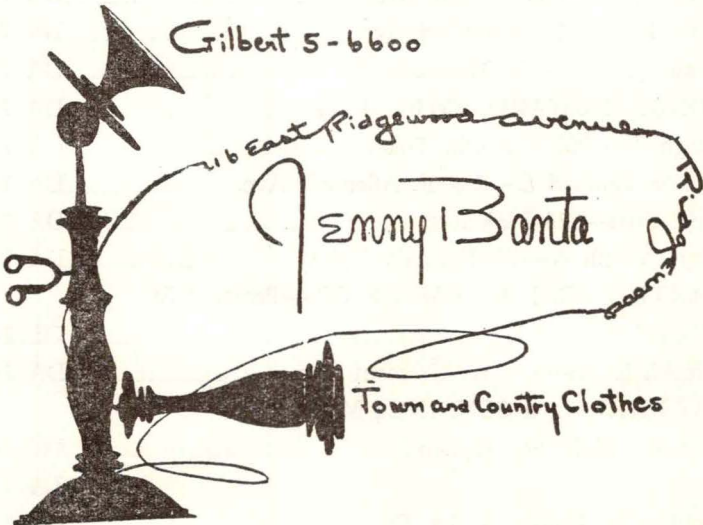 Gilbert 5-6600
216 East Ridgewood avenue
Ridgewood
Jenny Banta
Town and Country Clothes